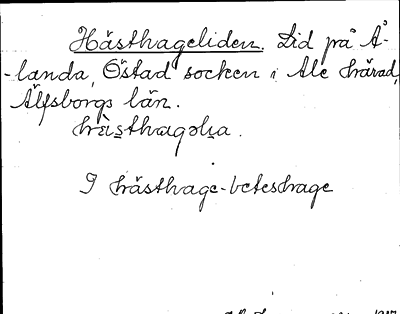 Hästhageliden. Lid på Å-
-landa, Östad socken i Ale härad,
Älfsborgs län.
I hästhage - beteshage